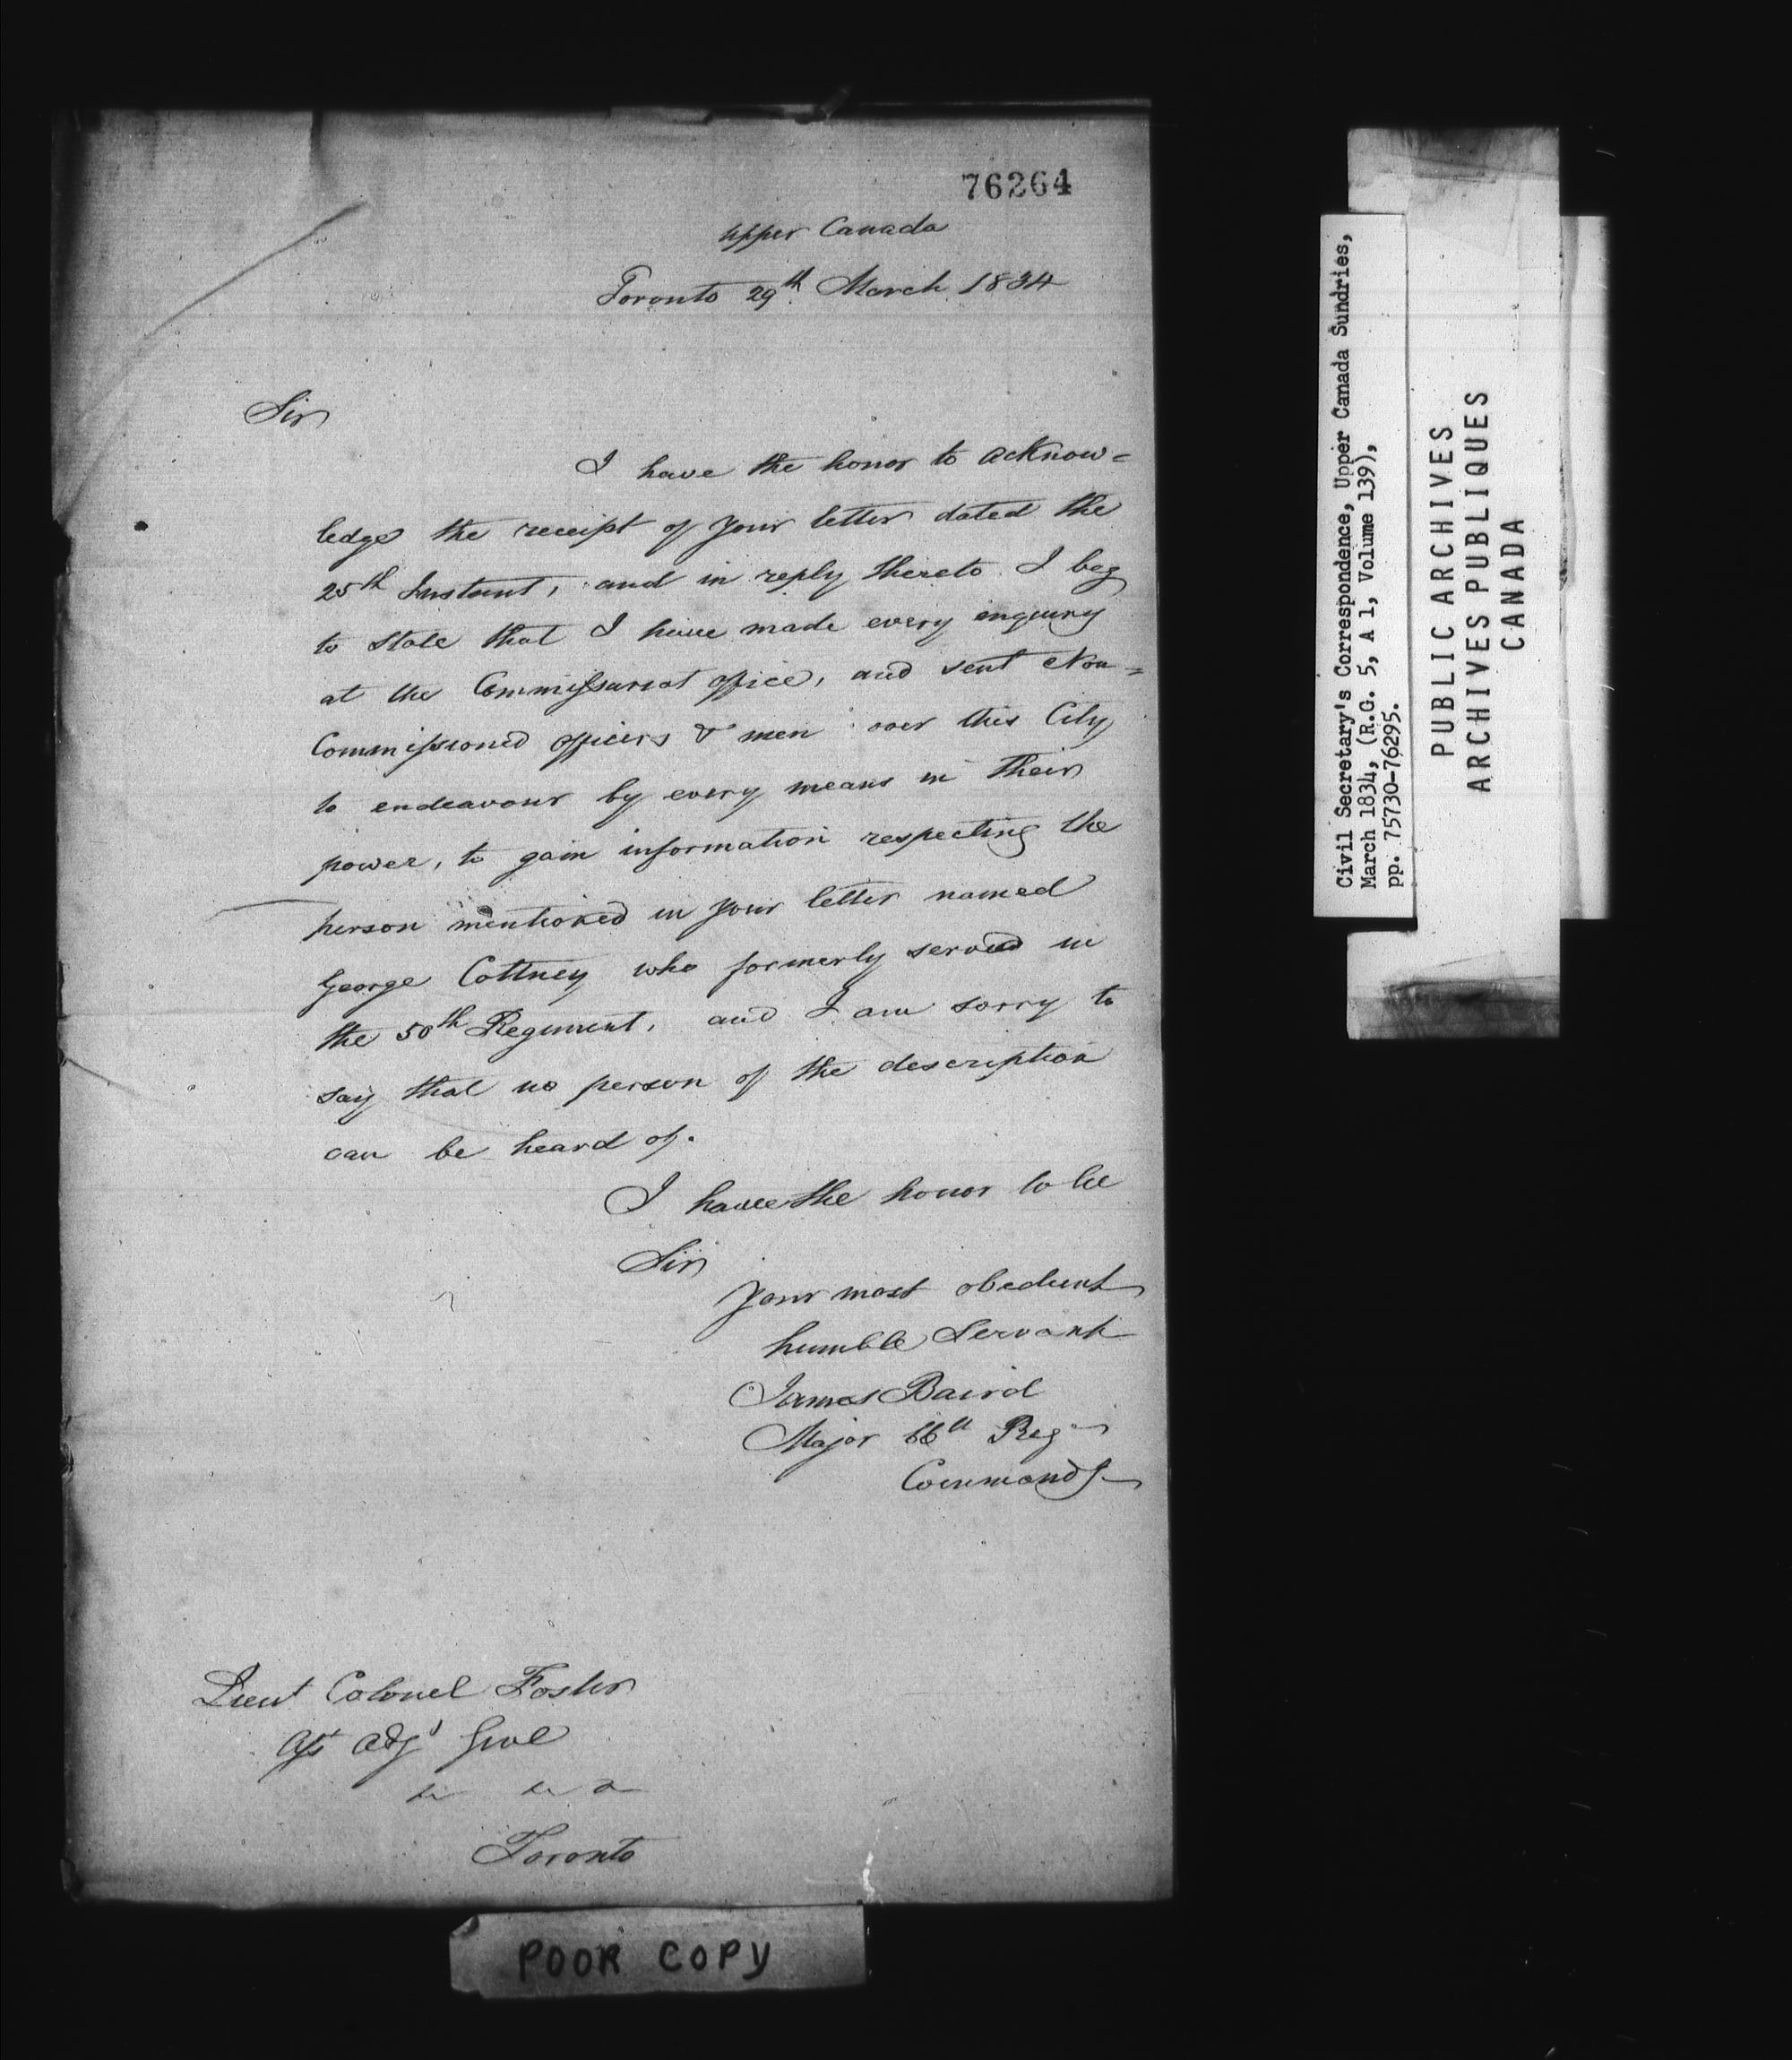 76264
Upper Canada
Toronto 29th March 1834
Sir
I have the honor to acknow=
ledge the receipt of your letter dated the
25th Instant, and in reply thereto I beg
to state that I have made every enquiry
at the Commissariat office, and sent Non=
Commissioned officers & men over this City
to endeavour by every means in their
power, to gain information respecting the
person mentioned in your letter named
George Cottney who formerly served in
the 50th Regiment, and I am sorry to
say that no person of the description
can be heard of.
I have the honor to be
Sir
Your most obedient
humble Servant
James Baird
Major 66th Reg
Command
Lieut Colonel Foster
Ast Adjt Genl
Toronto
POOR COPY
Civil Secretary's Correspondence, Upper Canada Sundries,
March 1834, (R.G. 5, A 1, Volume 139),
pp. 75730-76295.
PUBLIC ARCHIVES
ARCHIVES PUBLIQUES
CANADA